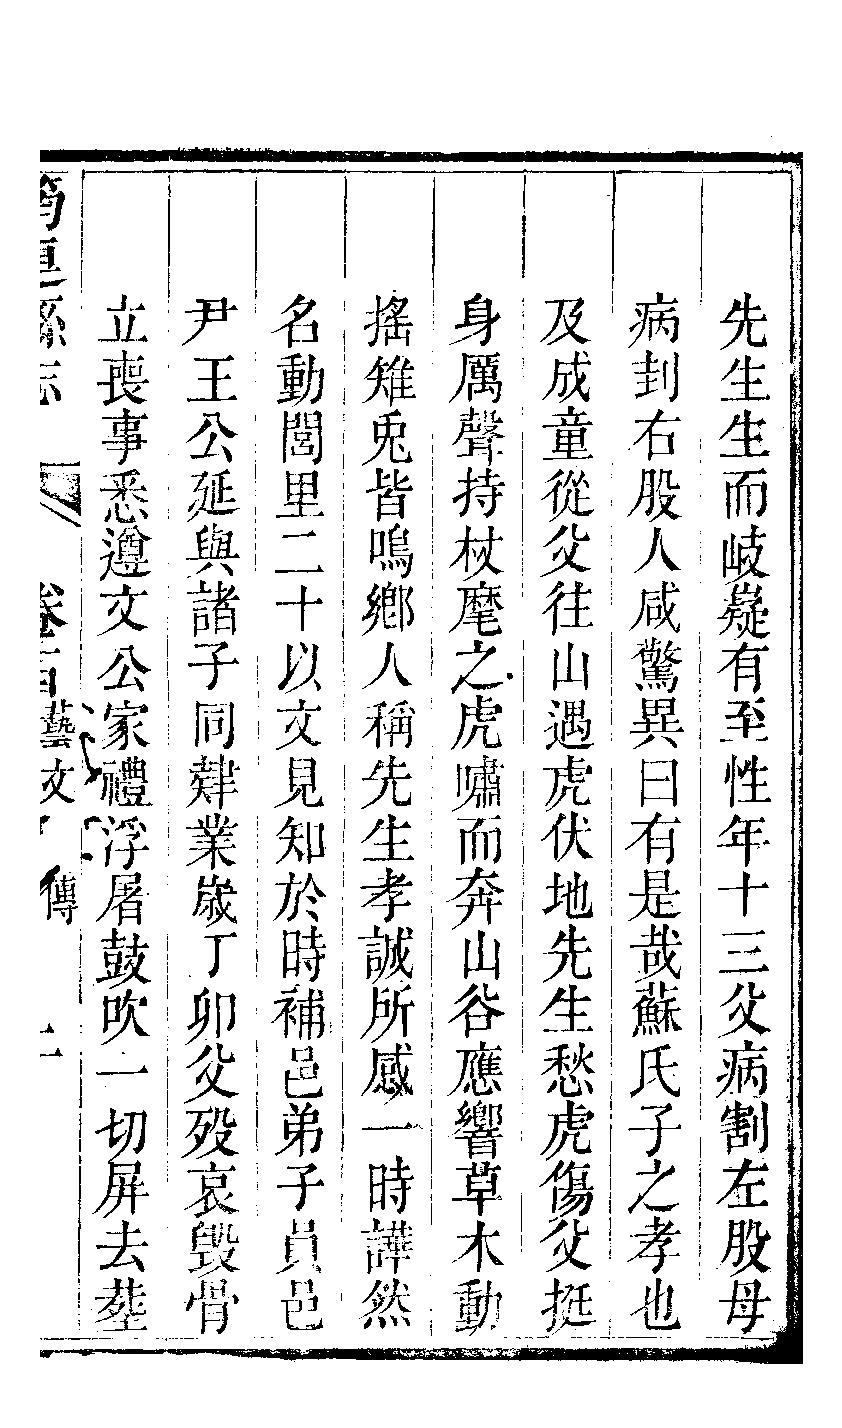 先生生而岐嶷有至性年十三父病割左股母
病刲右股人咸驚異曰有是哉蘇氏子之孝也
及成童從父往山遇虎伏地先生愁虎傷父挺
身厲聲持杖麾之虎嘯而奔山谷應響草木動
搖雉兎皆鳴鄉人稱先生孝誠所感一時譁然
名動閭里二十以文見知於時補邑弟子員邑
尹王公延與諸子同肄業歲丁卯父歿哀毀骨
立喪事悉遵文公家禮浮屠鼓吹一切屏去塟
縣志 卷 藝文 傳